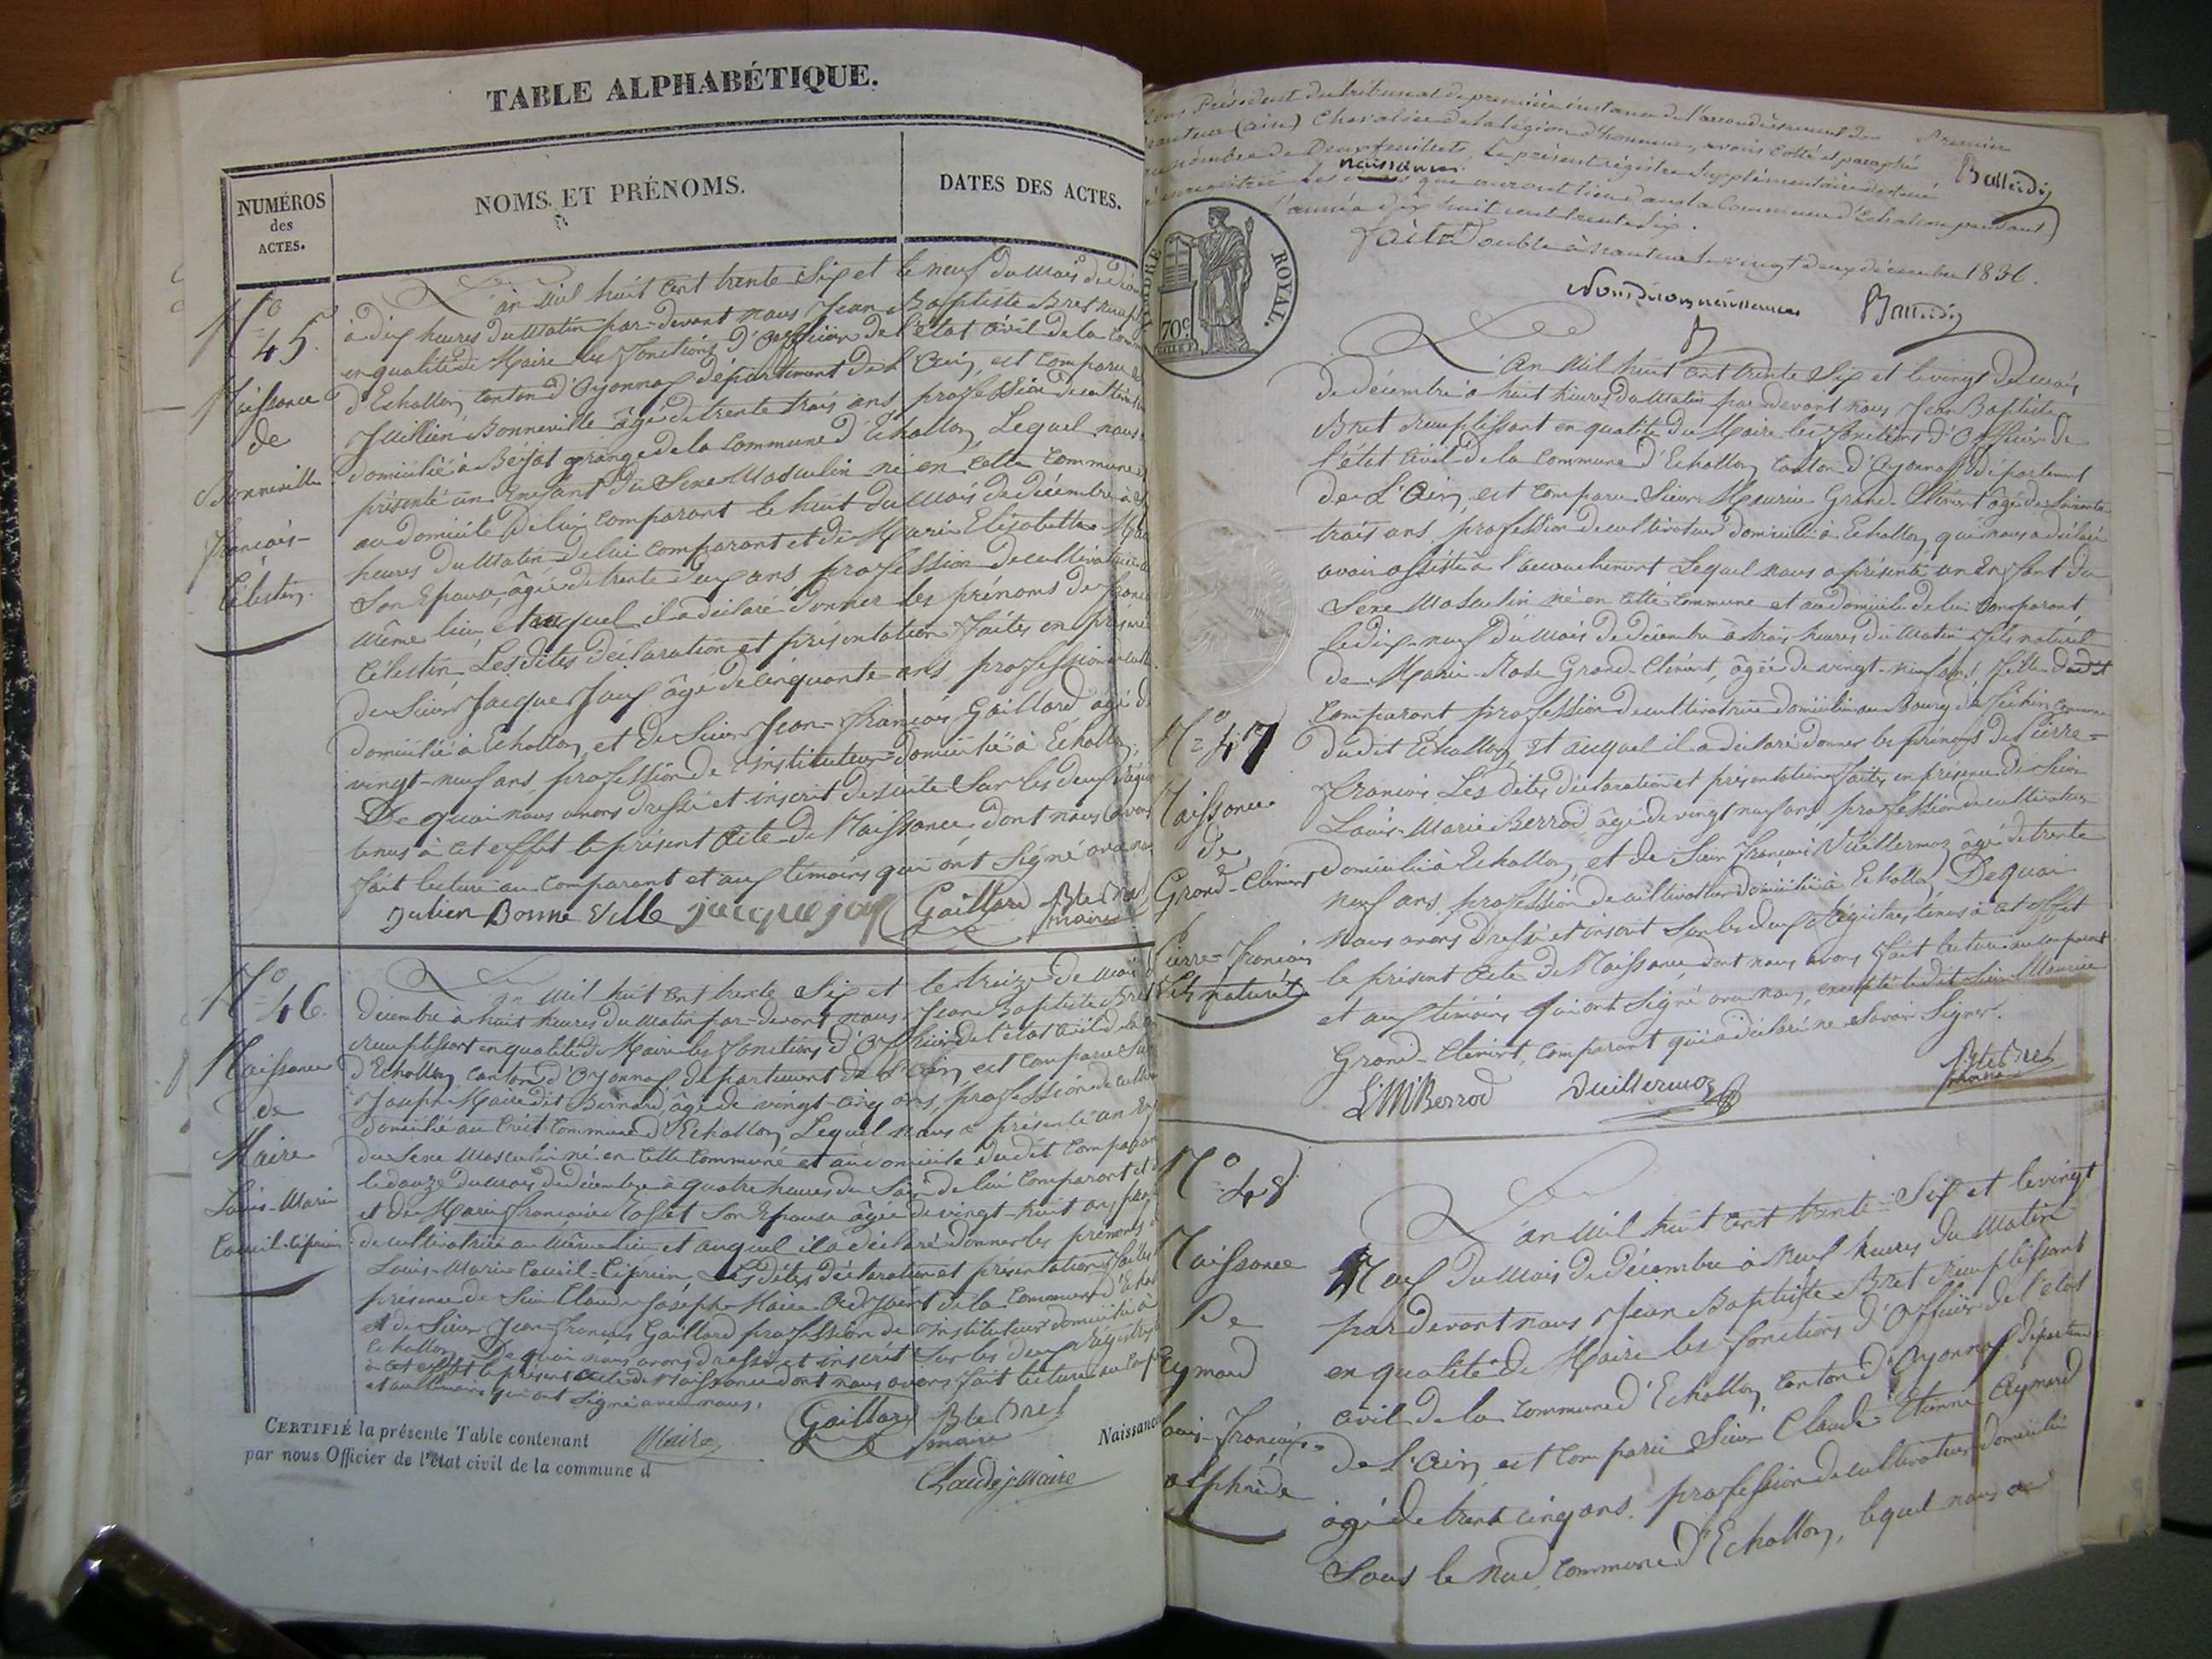 TABLE ALPHABÉTIQUE.
NUMÉROS
des
ACTES.
NOMS ET PRÉNOMS.
DATES DES ACTES.
N.° 45.
Naissance
de
Bonneville
françois-
Célestin.
L'an Mil huit cent trente Six et le neuf du Mois de
à dix heures du Matin par-devant nous Jean Baptiste Bret
en qualité de Maire les fonctions d'officier de l'état Civil de la
d'Echallon, Canton d'Oyonnax département de L'Ain, est comparu
Jullien Bonneville âgé de trente trois ans, profession de cultivateur
domicilié à Béyat grange de la commune d'Echallon, Lequel nous a
présenté un Enfant du Sexe Masculin né en cette commune et
au domicile de lui comparant le huit du Mois de décembre à
heures du Matin de lui comparant et de Marie Elisabeth
son Epouse, âgée de trente deux ans profession de cultivatrice
même lieu et auquel il a déclaré donner les prénoms de
Célestin. Les dites déclaration et présentation faites en
de Sieur Jacque Jaux âgé de Cinquante ans, profession
domicilié à Echallon, et de Sieur Jean-françois Gaillard âgé de
vingt-neuf ans, profession de instituteur domicilié à Echallon,
De quoi nous avons dressé et inscrit de suite sur les deux
tenus à cet effet le présent Acte de Naissance dont nous avons
fait lecture au comparant et aux témoins qui ont signé avec nous
Julien Bonne Ville jacque jaux Gaillard Bte Bret
maire
N.° 46.
Naissance
de
Maire
Louis-Marie
Camil-Ciprien
L'an Mil huit cent trente Six et le treize de Mois
décembre à huit heures du Matin par-devant nous Jean Baptiste Bret
remplissant en qualité de Maire les fonctions d'officier de l'état civil de la
d'Echallon, Canton d'Oyonnax, département de L'Ain, est comparu
Joseph Maire dit Bernard, âgé de vingt-cinq ans, profession de
domicilié au Crêt commune d'Echallon, Lequel nous a présenté un
du Sexe Masculin né en cette commune et au domicile du dit comparant
le douze du mois de décembre à quatre heures du Soir de lui comparant et
et de Marie françoise son Epouse âgée de vingt-huit ans
de cultivatrice au Même lieu et auquel il a déclaré donner les prénoms
Louis-Marie Camil-Ciprien Les dites déclaration et présentation faites
présence de Sieur Claude Joseph Maire Adjoint de la commune d'
et de Sieur Jean-françois Gaillard profession de instituteur domicilié à
Echallon, De quoi nous avons dressé et inscrit sur les deux
à cet effet le présent acte de Naissance dont nous avons fait lecture au
et aux témoins qui ont signé avec nous.
CERTIFIÉ la présente Table contenant
par nous Officier de l'état civil de la commune d
Maire Gaillard Bte Bret
maire
Claude j maire
Naissance
Président du tribunal de première instance de l'arrondissement de
(ain) Chevalier de la légion d'honneur, avons Cotté et paraphé
nombre de Deux feuillets, le présent régistre Supplémentaire destiné
les naissances que auront lieu dans la Commune d'Echallon pendant
l'année dix huit cent trente six.
fait double à nantua le vingt deux décembre 1836.
Premier
TIMBRE ROYAL.
70 c.
L'an Mil huit cent trente Six et le vingt du Mois
de décembre à huit heures du Matin par devant nous Jean Baptiste
Bret remplissant en qualité du Maire les fonctions d'Officier de
l'état Civil de la commune d'Echallon, canton d'Oyonnax département
de L'Ain, est comparu Sieur Maurice Grand-Clément âgé de Soixante
trois ans, profession de cultivateur domicilié à Echallon, qui nous a déclaré
avoir assisté à l'accouchement Lequel nous a présenté un Enfant du
Sexe Masculin né en cette commune et au domicile de lui comparant,
le dix-neuf du Mois de décembre à trois heures du Matin fils naturel
de Marie-Rose Grand-Clément, âgée de vingt-neuf ans, fille dudit
comparant profession de cultivatrice domiciliée au Bourg
dudit Echallon, Et auquel il a déclaré donner les prénoms de Pierre-
françois Les dites déclaration et présentation faites en présence de Sieur
Louis-Marie Berrod âgé de vingt neuf ans profession de cultivateur
domicilié à Echallon, et de Sieur françois Vuillermoz âgé de trente
neuf ans profession de cultivateur domicilié à Echallon, De quoi
nous avons dressé et inscrit sur les deux Régistres tenus à cet effet
le présent Acte de Naissance, dont nous avons fait lecture au comparant
et aux témoins qui ont signé avec nous, excepté le dit Sieur Maurice
Grand-Clément, comparant qui a déclaré ne Savoir Signer.
L. M. Berrod Vuillermoz Bte Bret
maire
N.° 47
Naissance
de
Grand-Clément
Pierre-françois
fils naturel
N.° 48
Naissance
De
Aymard
Louis-françois-
Alphrède
L'an Mil huit cent trente-Six et le vingt
Neuf du Mois de décembre à Neuf heures du Matin
par devant nous Jean Baptiste Bret remplissant
en qualité de Maire les fonctions d'Officier de l'état
civil de la commune d'Echallon, Canton d'Oyonnax département
de L'Ain, est comparu Sieur Claude-Etienne Aymard
âgé de trente cinq ans, profession de cultivateur domicilié
Sous le Nad commune d'Echallon, lequel nous a